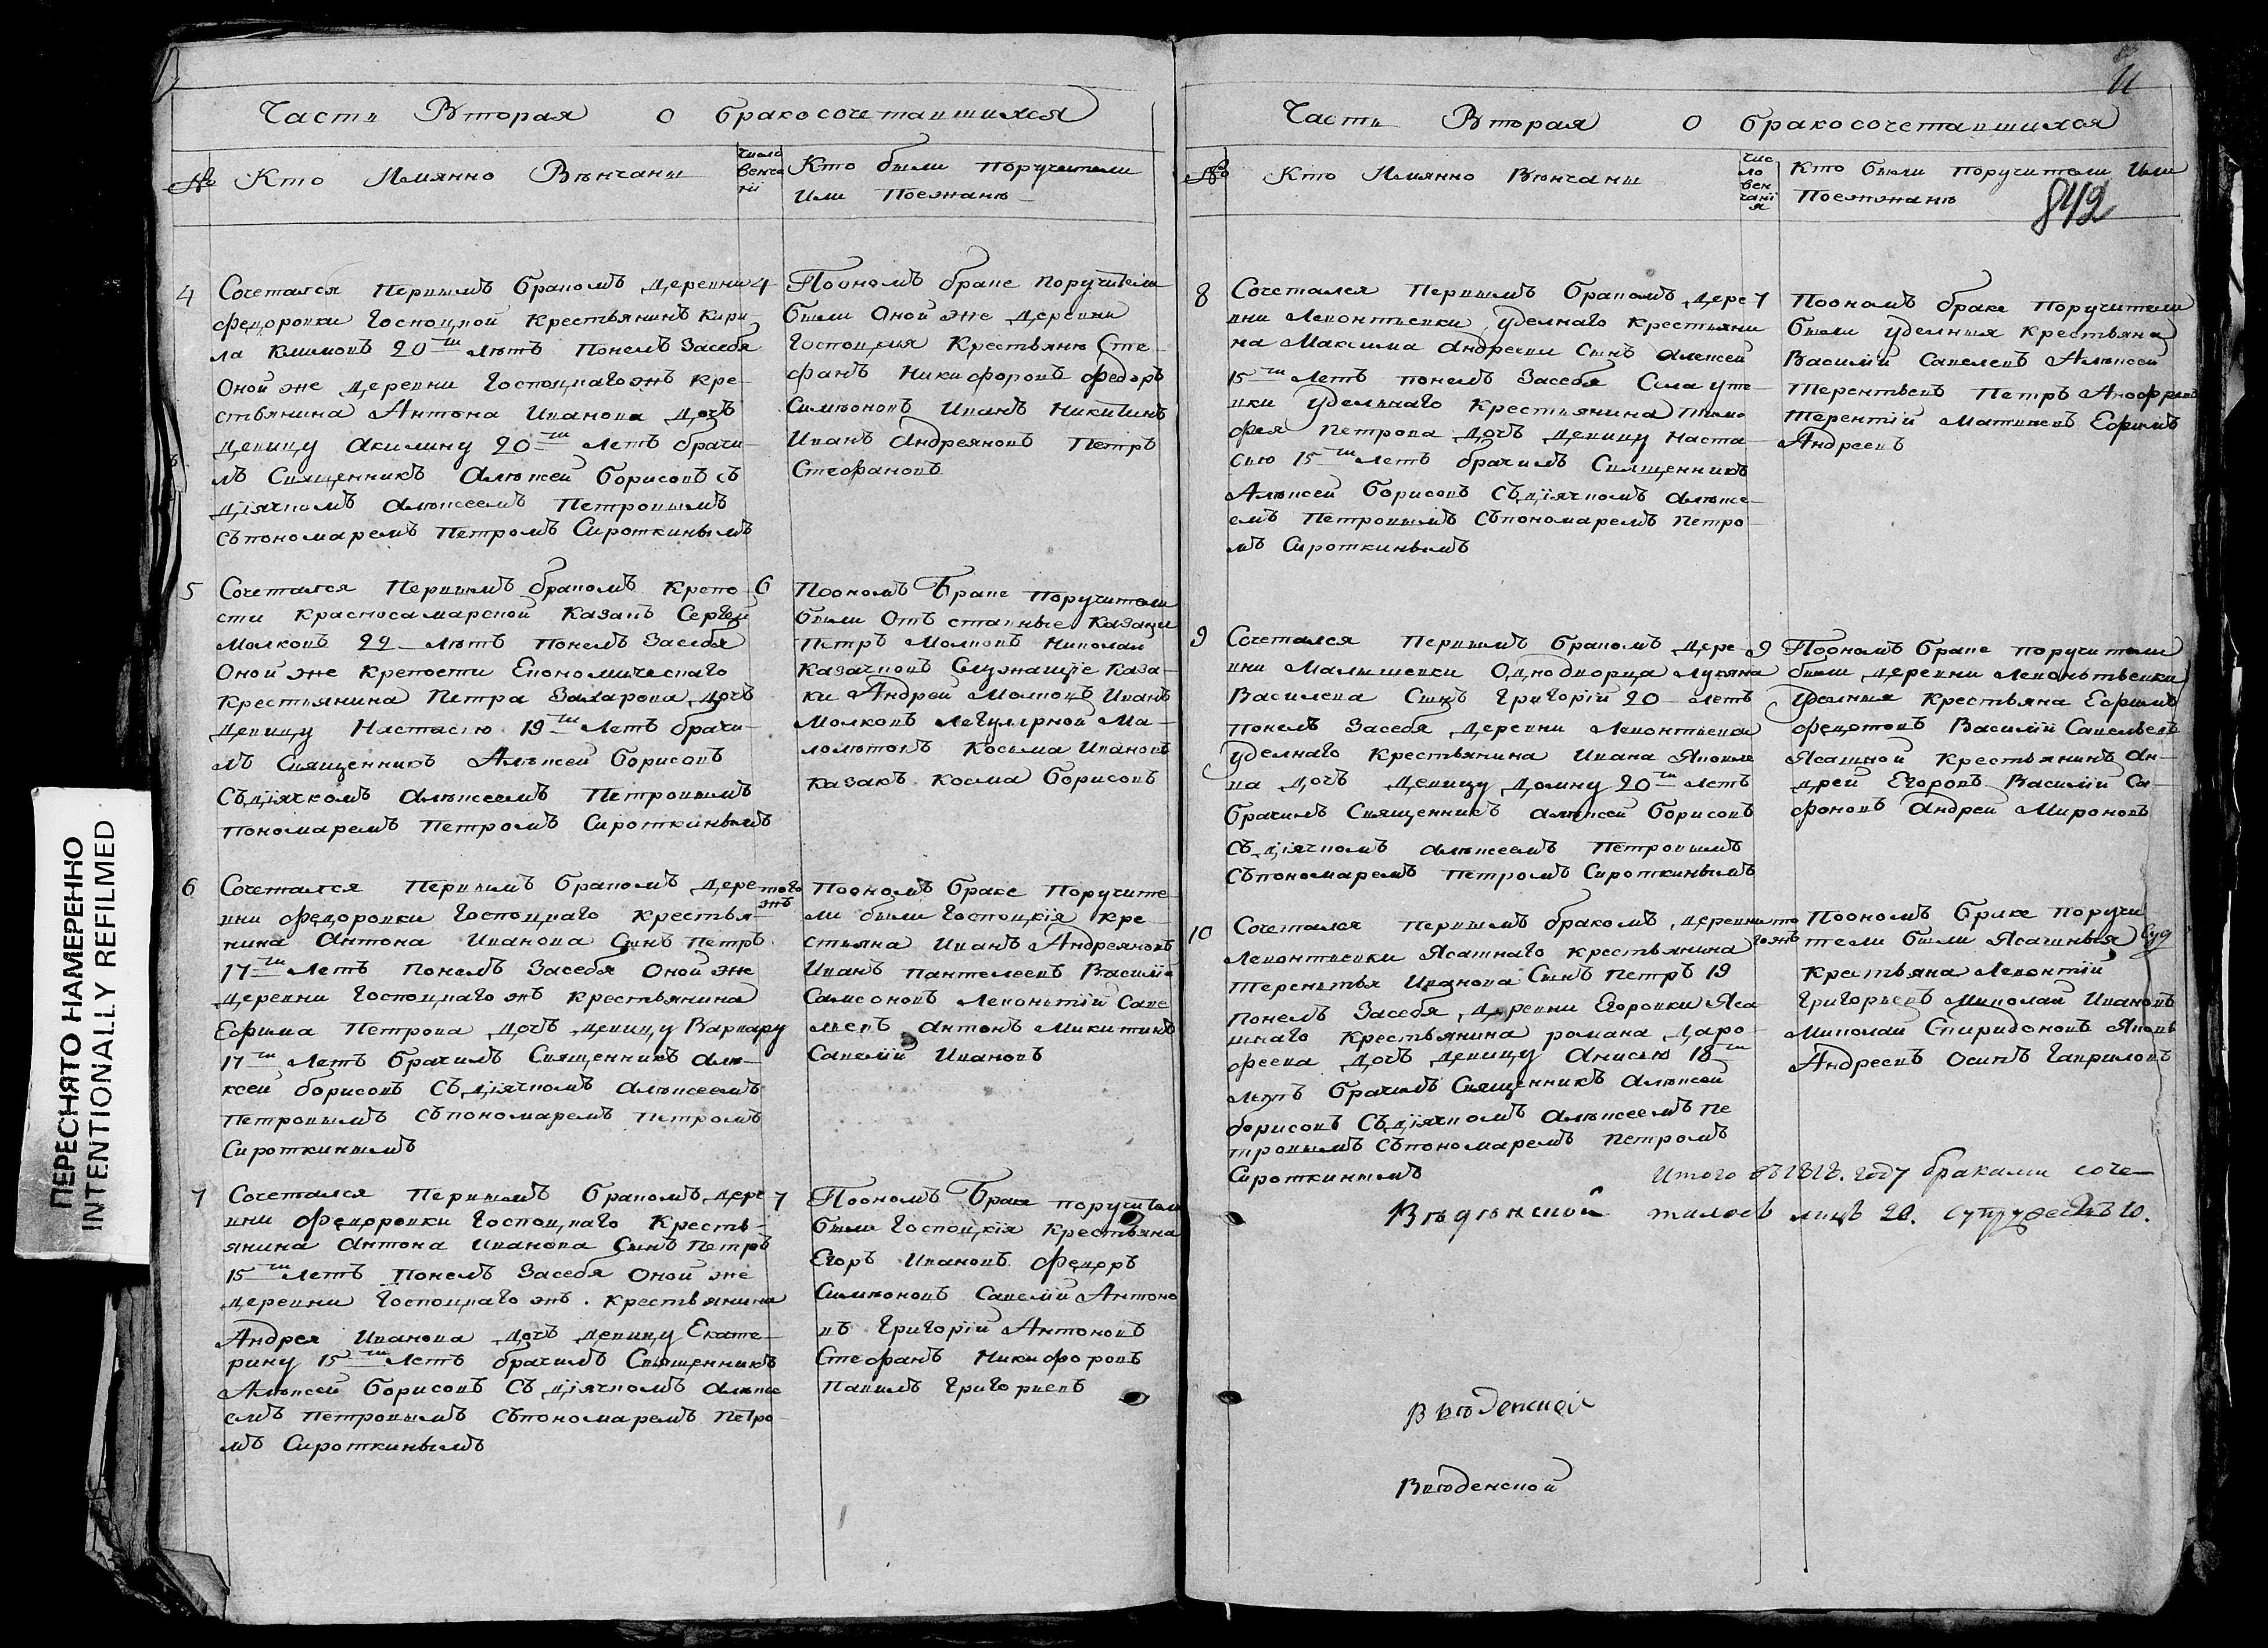 Часть Вторая О бракосочетавшихся
№ Кто Имянно Венчаны
число венча нїї
Кто были поручители
Или Поезжанѣ
4 Сочетался первымъ бракомъ деревни
Федоровки Господцкой крестьянинъ Кири-
ла Климовъ 20ти лѣтъ понелъ засебя
Оной же деревни Господцкагожъ кре-
стьянина Антона Иванова дочь
девицу Акилину 20ти летъ брачи-
лъ Священникъ Алѣксей Борисовъ съ
дїячкомъ Алѣксеемъ Петровымъ
съпономаремъ Петромъ Сироткинымъ
4
Поономъ браке поручители
были Оной же деревни
Господцкия крестьяне Сте-
фанъ Никифоровъ Федоръ
Симионовъ Иванъ Никитинъ
Иванъ Андреяновъ Петръ
Стефановъ
5 Сочетался первымъ бракомъ крепо-
сти Красносамарской Казакъ Сергей
Молковъ 22 лѣтъ понелъ засебя
Оной же крепости Економическаго
крестьянина Петра Захарова дочь
девицу Настасью 19ти летъ брачи-
лъ Священникъ Алѣксей Борисовъ
Съдїячкомъ Алѣксеемъ Петровымъ
пономаремъ Петромъ Сироткинымъ
6
Поономъ браке поручители
были Отъставные казаки
Петръ Молковъ Николай
Казачковъ Служащїе каза-
ки Андрей Молковъ Иванъ
Молковъ Легулярной Ма-
лолѣтокъ Косьма Ивановъ
казакъ Косма Борисовъ
6 Сочетался первымъ бракомъ дере-
вни Федоровки Господцкаго крестья-
нина Антона Иванова Сынъ Петръ
17ти летъ понелъ засебя Оной же
деревни Господцкаго жъ крестьянина
Ефима Петрова дочь девицу Варвару
17ти летъ брачилъ Священникъ Алѣ-
ксей Борисовъ Съдїячкомъ Алѣксеемъ
Петровымъ съпономаремъ Петромъ
Сироткинымъ
того жъ
Поономъ браке поручите-
ли были Господцкїя кре-
стьяна Иванъ Андреяновъ
Иванъ Пантелеевъ Василїй
Самсоновъ Левонътїй Саве
льевъ Антонъ Микитинъ
Савелїй Ивановъ
7 Сочетался первымъ бракомъ дере
вни Федоровки Господцкаго кресть-
янина Антона Иванова Сынъ Петръ
15ти летъ понелъ засебя Оной же
деревни Господцкаго жъ крестьянина
Андрея Иванова дочь девицу Екате-
рину 15ти летъ брачилъ Священникъ
Алѣксей Борисовъ Съ дїячкомъ Алѣксе
емъ Петровымъ съпономаремъ Петро
мъ Сироткинымъ
7
Поономъ браке поручители
были Господцкїя крестьяна
Егоръ Ивановъ Федоръ
Симионовъ Савелїй Антоно
въ Григорїй Антоновъ
Стефанъ Никифоровъ
Павилъ Григорьевъ
Часть Вторая О бракосочетавшихся
№ Кто Имянно Венчаны
чис ло вен чанї я
Кто были поручители Или
Поезжанѣ
842
8 Сочетался первымъ бракомъ дере
вни Левонтьевки Уделнаго крестьяни
на Максима Андреева Сынъ Алексей
15ти летъ понелъ засебя Села Уте-
вки Удельнаго крестьянина Тимо
фея Петрова дочь девицу Наста-
сью 15ти летъ брачилъ Священникъ
Алѣксей Борисовъ Съдїячкомъ Алѣксе-
емъ Петровымъ Съпономаремъ Петро-
мъ Сироткинымъ
7
Поономъ браке поручители
были Уделныя крестьяна
Василїй Савелевъ Алѣксей
Терентьевъ Петръ
Терентїй Матвеевъ Ефимъ
Андреевъ
9 Сочетался первымъ бракомъ дере-
вни Малышевки Однодворца Лукяна
Василева Сынъ Григорїй 20 летъ
понелъ засебя деревни Левонтьевки
Уделнаго крестьянина Ивана Яковле
ва дочь девицу Домну 20ти летъ
брачилъ Священникъ Алѣксей Борисовъ
Съдїячкомъ Алѣксеемъ Петровымъ
Съпономаремъ Петромъ Сироткинымъ
9
Поономъ браке поручители
были деревни Левонътьевки
Уделныя крестьяна Ефимъ
Федотовъ Василїй Савельевъ
Ясашной крестьянинъ Ан-
дрей Егоровъ Василїй Са-
фоновъ Андрей Мироновъ
10 Сочетался первымъ бракомъ деревни
Левонтьевки Ясашнаго крестьянина
Теренътья Иванова Сынъ Петръ 19
понелъ засебя деревни Егоровки Яса
шнаго крестьянина Романа Даро-
феева дочь девицу Анисью 18ти
летъ брачилъ Священникъ Алѣксей
Борисовъ Съдїячкомъ Алѣксеемъ Пе
тровымъ Съпономаремъ Петромъ
Сироткинымъ
то гожъ
Поономъ браке поручи
тели были Ясашныя
крестьяна Левонтїй
Григорьевъ Миколай Ивановъ
Миколай Спиридоновъ Яковъ
Андреевъ Осипъ Гавриловъ
Итого въ 1818. году браками соче-
талось лицъ 20. супружествъ 10.
Введенской
Введенской
Введенской
ПЕРЕСНЯТО НАМЕРЕННО
INTENTIONALLY REFILMED